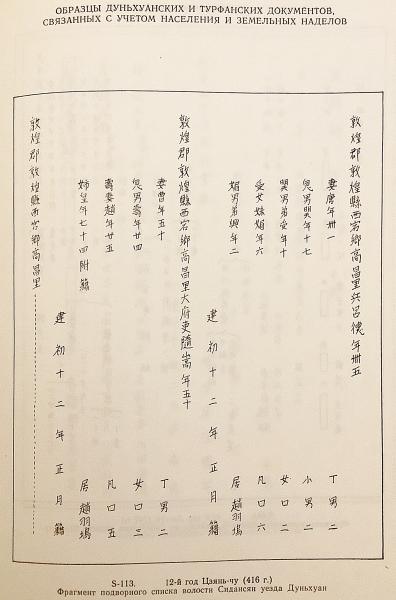 ОБРАЗЦЫ ДУНЬХУАНСКИХ И ТУРФАНСКИХ ДОКУМЕНТОВ,
СВЯЗАННЫХ С УЧЕТОМ НАСЕЛЕНИЯ И ЗЕМЕЛЬНЫХ НАДЕЛОВ
敦煌郡敦煌縣西宕鄉高昌里兵呂德年卌五
妻唐年卌一 丁男二
息男㬎年十七 小男二
㬎男弟受年十 女口二
受女妹媚年六 凡口六
媚男弟興年二 居趙羽塢
建初十二年正月籍
敦煌郡敦煌縣西宕鄉高昌里大府吏隨嵩年五十
妻曹年五十 丁男二
息男壽年廿四 女口三
壽妻趙年廿五 凡口五
姊皇年七十四附籍 居趙羽塢
建初十二年正月籍
敦煌郡敦煌縣西宕鄉高昌里
S-113. 12-й год Цзянь-чу (416 г.)
Фрагмент подворного списка волости Сидансян уезда Дуньхуан